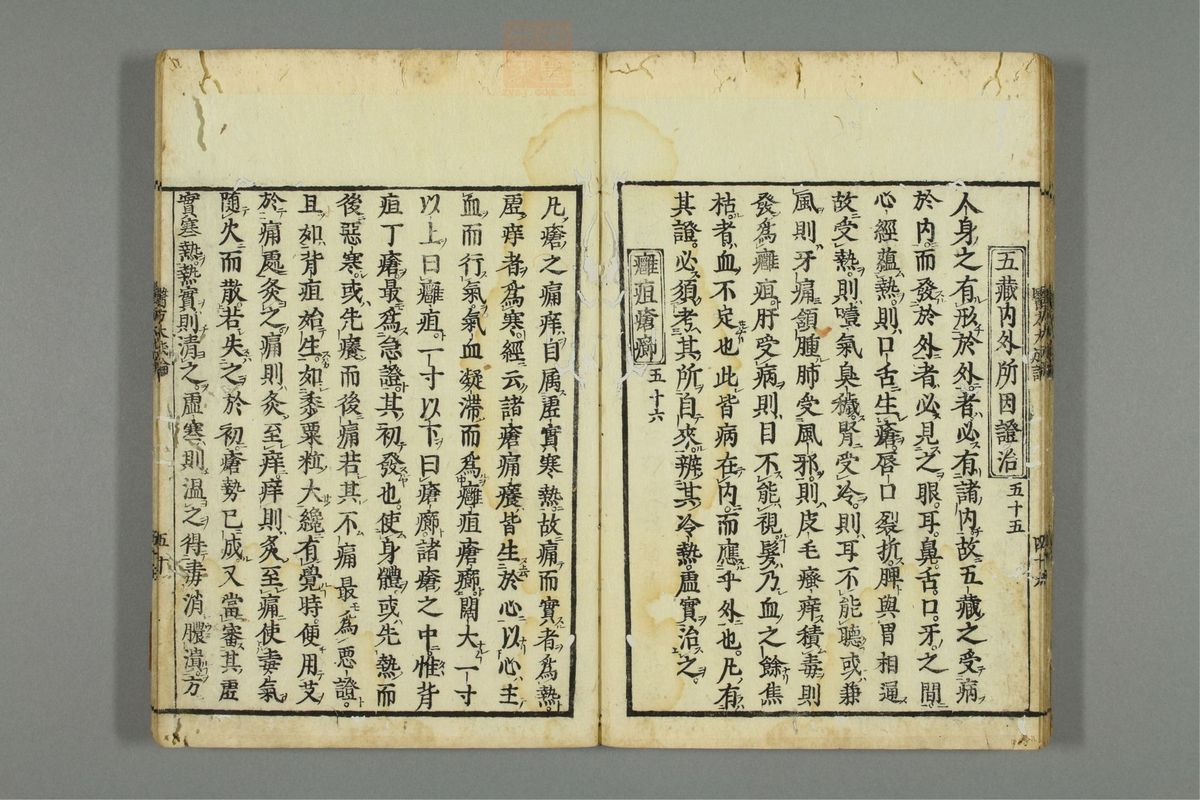 五藏内外所因證治 五十五
人身之有形於外者必有諸内故五藏之受病
於内而發於外者必見之眼耳鼻舌口牙之間
心經蘊熱則口舌生瘡唇口裂折脾與胃相逼
故受熱則噎氣臭穢腎受冷則耳不能聽或兼
風則牙痛頷腫肺受風邪則皮毛瘙痒積毒則
發爲癰疽肝受病則目不能視髮乃血之餘焦
枯者血不定也此皆病在内而應乎外也凡有
其證必須考其所自來辨其冷熱虛實治之
癰疽瘡癤 五十六
凡瘡之痛痒自属虛實寒熱故痛而實者爲熱
虛痒者爲寒經云諸瘡痛癢皆生於心以心主
血而行氣氣血凝滯而爲癰疽瘡癤闊大一寸
以上曰癰疽一寸以下曰瘡癤諸瘡之中惟背
疽丁瘡最爲急證其初發也使身體或先熱而
後惡寒或先癢而後痛若其不痛最爲悪證
且如背疽始生如黍粟粒大纔有覺時便用艾
於痛處灸之痛則灸至痒痒則灸至痛使毒氣
随火而散若失之於初瘡勢已成又當審其虛
實寒熱熱實則清之虛寒則温之得毒消膿潰方